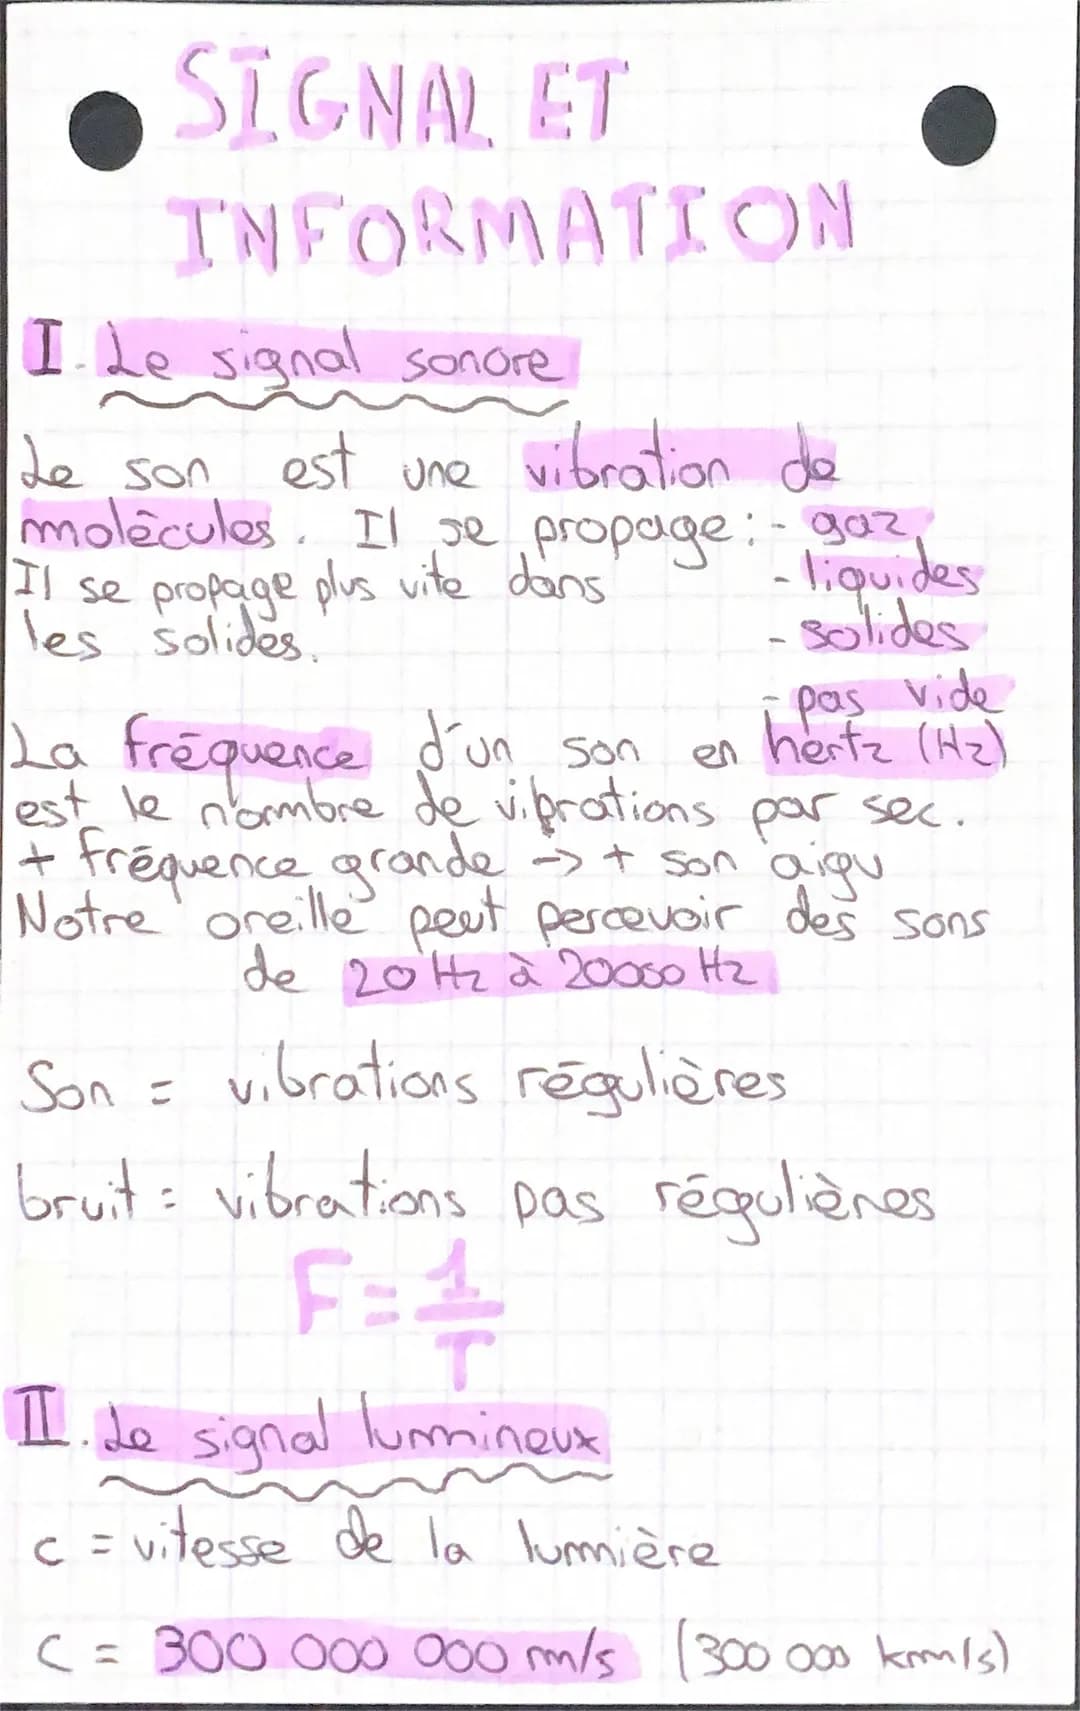 SIGNAL ET
INFORMATION
I. Le signal sonore
Le son est une vibration de
molécules. Il se propage : - gaz
Il se propage plus vite dans - liquides
les solides. - solides
- pas vide
La fréquence d'un son en hertz (Hz)
est le nombre de vibrations par sec.
+ fréquence grande -> + son aigu
Notre oreille peut percevoir des sons
de 20 Hz à 20000 Hz
Son = vibrations régulières
bruit = vibrations pas régulières
F = 1/T
II. Le signal lumineux
c = vitesse de la lumière
c = 300 000 000 m/s (300 000 km/s)